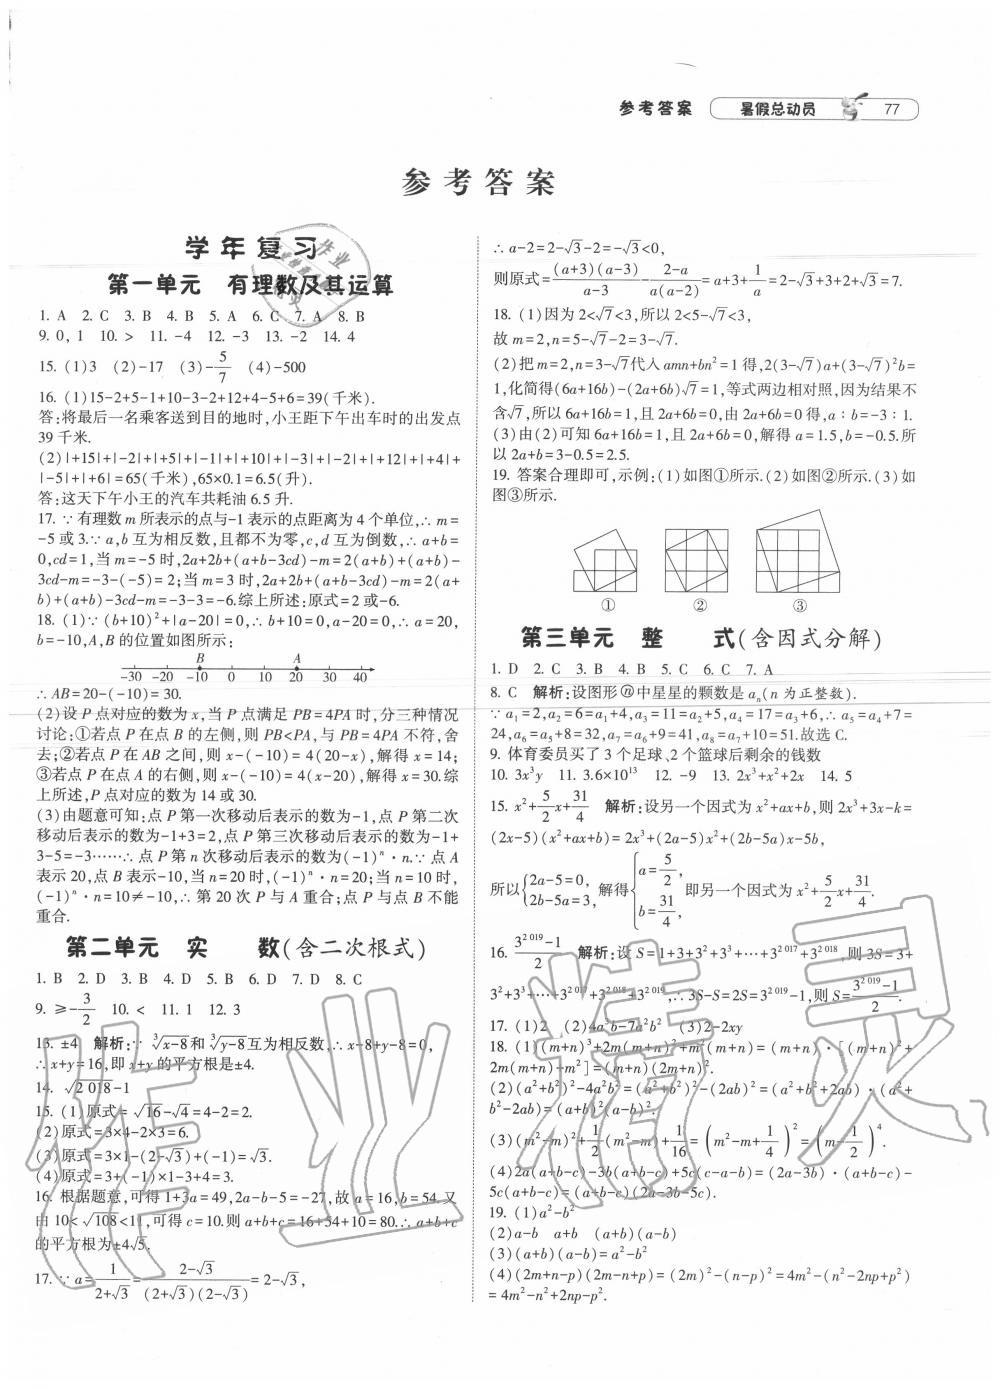 参考答案 暑假总动员 77
参考答案
学年复习
第一单元 有理数及其运算
1. A 2. C 3. B 4. B 5. A 6. C 7. A 8. B
9. 0, 1 10. > 11. -4 12. -3 13. -2 14. 4
15. (1)3 (2)-17 (3)-5/7 (4)-500
16. (1)15-2+5-1+10-3-2+12+4-5+6=39(千米).
答:将最后一名乘客送到目的地时,小王距下午出车时的出发点
39 千米.
(2)|+15|+|-2|+|+5|+|-1|+|+10|+|-3|+|-2|+|+12|+|+4|+
|-5|+|+6|=65(千米),65×0.1=6.5(升).
答:这天下午小王的汽车共耗油 6.5 升.
17. ∵有理数 m 所表示的点与-1 表示的点距离为 4 个单位,∴m=
-5 或 3.∵a,b 互为相反数,且都不为零,c,d 互为倒数,∴a+b=
0,cd=1,当 m=-5 时,2a+2b+(a+b-3cd)-m=2(a+b)+(a+b)-
3cd-m=-3-(-5)=2;当 m=3 时,2a+2b+(a+b-3cd)-m=2(a+
b)+(a+b)-3cd-m=-3-3=-6.综上所述:原式=2 或-6.
18. (1)∵(b+10)²+|a-20|=0,∴b+10=0,a-20=0,∴a=20,
b=-10,A,B 的位置如图所示:
B A
-30 -20 -10 0 10 20 30 40
∴AB=20-(-10)=30.
(2)设 P 点对应的数为 x,当 P 点满足 PB=4PA 时,分三种情况
讨论:①若点 P 在点 B 的左侧,则 PB<PA,与 PB=4PA 不符,舍
去;②若点 P 在 AB 之间,则 x-(-10)=4(20-x),解得 x=14;
③若点 P 在点 A 的右侧,则 x-(-10)=4(x-20),解得 x=30.综
上所述,P 点对应的数为 14 或 30.
(3)由题意可知:点 P 第一次移动后表示的数为-1,点 P 第二次
移动后表示的数为-1+3=2,点 P 第三次移动后表示的数为-1+
3-5=-3……∴点 P 第 n 次移动后表示的数为(-1)ⁿ·n.∵点 A
表示 20,点 B 表示-10,当 n=20 时,(-1)ⁿ·n=20;当 n=10 时,
(-1)ⁿ·n=10≠-10,∴第 20 次 P 与 A 重合;点 P 与点 B 不能
重合.
第二单元 实 数(含二次根式)
1. B 2. D 3. B 4. D 5. B 6. D 7. D 8. C
9. ≥-3/2 10. < 11. 1 12. 3
13. ±4 解析:∵∛(x-8)和∛(y-8)互为相反数,∴x-8+y-8=0,
∴x+y=16,即 x+y 的平方根是±4.
14. √2 018-1
15. (1)原式=√16-√4=4-2=2.
(2)原式=3×4-2×3=6.
(3)原式=3×1-(2-√3)+(-1)=√3.
(4)原式=3+(-1)×1-3+4=3.
16. 根据题意,可得 1+3a=49,2a-b-5=-27,故 a=16,b=54.又
由 10<√108<11,可得 c=10.则 a+b+c=16+54+10=80.∴a+b+c
的平方根为±4√5.
17. ∵a=1/(2+√3)=(2-√3)/((2+√3)(2-√3))=2-√3,
∴a-2=2-√3-2=-√3<0,
则原式=(a+3)(a-3)/(a-3)-(2-a)/(a(a-2))=a+3+1/a=2-√3+3+2+√3=7.
18. (1)因为 2<√7<3,所以 2<5-√7<3,
故 m=2,n=5-√7-2=3-√7.
(2)把 m=2,n=3-√7代入 amn+bn²=1 得,2(3-√7)a+(3-√7)²b=
1,化简得(6a+16b)-(2a+6b)√7=1,等式两边相对照,因为结果不
含√7,所以 6a+16b=1,且 2a+6b=0,由 2a+6b=0 得,a∶b=-3∶1.
(3)由(2)可知 6a+16b=1,且 2a+6b=0,解得 a=1.5,b=-0.5.所
以 2a+b=3-0.5=2.5.
19. 答案合理即可,示例:(1)如图①所示.(2)如图②所示.(3)如
图③所示.
① ② ③
第三单元 整 式(含因式分解)
1. D 2. C 3. B 4. B 5. C 6. C 7. A
8. C 解析:设图形ⓝ中星星的颗数是 aₙ(n 为正整数).
∵a₁=2,a₂=6=a₁+4,a₃=11=a₂+5,a₄=17=a₃+6,∴a₅=a₄+7=
24,a₆=a₅+8=32,a₇=a₆+9=41,a₈=a₇+10=51.故选 C.
9. 体育委员买了 3 个足球、2 个篮球后剩余的钱数
10. 3x³y 11. 3.6×10¹³ 12. -9 13. 2x³+x²+2x 14. 5
15. x²+5/2x+31/4 解析:设另一个因式为 x²+ax+b,则 2x³+3x-k=
(2x-5)(x²+ax+b)=2x³+(2a-5)x²+(2b-5a)x-5b,
所以{2a-5=0, 2b-5a=3, 解得{a=5/2, b=31/4, 即另一个因式为 x²+5/2x+31/4.
16. (3²⁰¹⁹-1)/2 解析:设 S=1+3+3²+3³+…+3²⁰¹⁷+3²⁰¹⁸,则 3S=3+
3²+3³+…+3²⁰¹⁷+3²⁰¹⁸+3²⁰¹⁹,∴3S-S=2S=3²⁰¹⁹-1,则 S=(3²⁰¹⁹-1)/2.
17. (1)2 (2)4a³b-7a²b² (3)2-2xy
18. (1)(m+n)³+2m(m+n)²+m²(m+n)=(m+n)·[(m+n)²+
2m(m+n)+m²]=(m+n)(2m+n)².
(2)(a²+b²)²-4a²b²=(a²+b²)²-(2ab)²=(a²+b²+2ab)·(a²+
b²-2ab)=(a+b)²(a-b)².
(3)(m²-m)²+1/2(m²-m)+1/16=(m²-m+1/4)²=(m-1/2)⁴.
(4)2a(a+b-c)-3b(a+b-c)+5c(c-a-b)=(2a-3b)·(a+b-c)-
5c(a+b-c)=(a+b-c)(2a-3b-5c).
19. (1)a²-b²
(2)a-b a+b (a+b)(a-b)
(3)(a+b)(a-b)=a²-b²
(4)(2m+n-p)(2m-n+p)=(2m)²-(n-p)²=4m²-(n²-2np+p²)
=4m²-n²+2np-p².
作业精灵